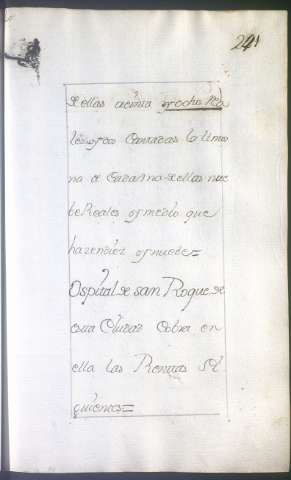 241
de ellas a ciento y ocho Rea
les y dos Cantadas la limos
na de Cada Una de ellas nue
be Reales y medio que
hazen diez y nuebe=
Ospital de san Roque de
esta Ciudad Cobra en
ella las Rentas Si
guientes=